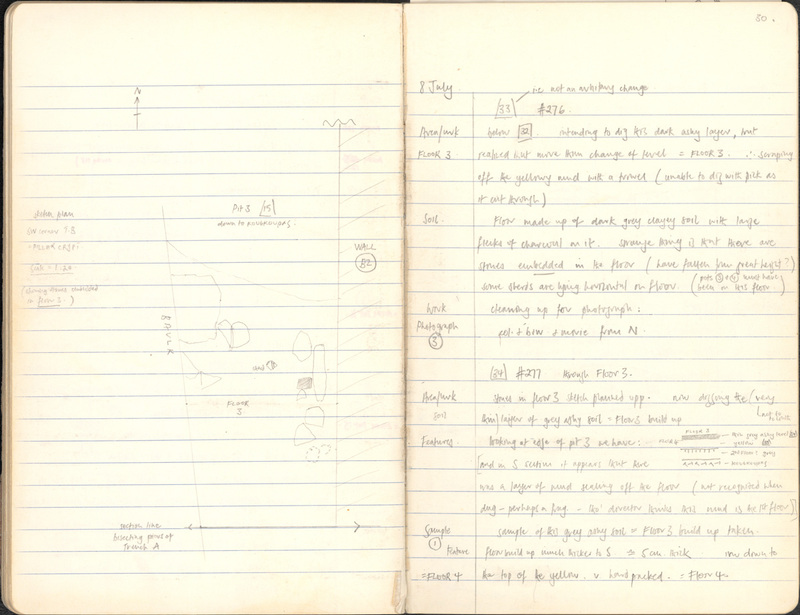 N
Pit 3 [15]
down to
sketch plan
scale = 1:20
(showing stones embedded
in floor 3)
WALL
(B2)
BAULK
FLOOR
3
section line
bisecting
Trench A
30.
8 July
i.e. not an arbitrary change
[33] #276.
Area/wk below [32]. intending to dig this dark ashy layer, but
FLOOR 3 realised but more than change of level = FLOOR 3. ∴ scraping
off the yellowy mud with a trowel (unable to dig with pick as
it cut through)
Soil. Floor made up of dark grey clayey soil with large
flecks of charcoal on it. Strange thing is that there are
stones embedded in the floor (have fallen from great height?)
some sherds are lying horizontal on floor. (pits 3 + must have
been on this floor.)
Work cleaning up for photograph:
Photograph col. + b/w + movie from N.
(3)
[34] #277 through Floor 3.
Area/wk stones in floor 3 sketch planned upp. now digging the (very
soil thin) layer of grey ashy soil = Floor 3 build up
Features. looking at edge of pit 3 we have:
FLOOR 3
thin grey ashy level
yellow
grey
[and in S section it appears that there
was a layer of mud sealing off the floor (not recognised when
dug - perhaps a - the director thinks this mud is the 1st floor)]
Sample sample of this grey ashy soil = Floor 3 build up taken.
(1)
Feature floor build up much thicker to S ⇒ 5 cm thick now down to
=FLOOR 4 the top of the yellow. v. hard packed. = Floor 4.